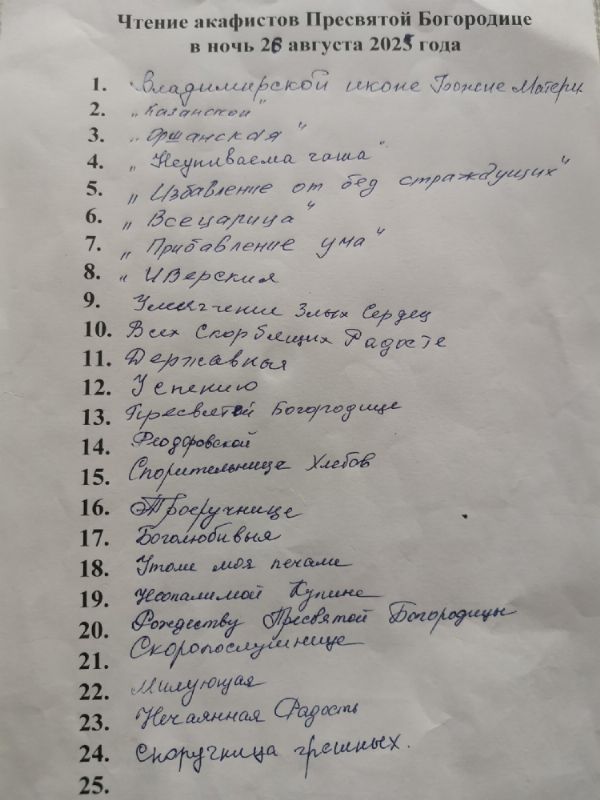 Чтение акафистов Пресвятой Богородице
в ночь 26 августа 2025 года
1. Владимирской иконе Божие Матери
2. „Казанской"
3. „Оршанская"
4. „Неупиваема чаша"
5. „Избавление от бед страждущих"
6. „Всецарица"
7. „Прибавление ума"
8. „Иверския
9. Умягчение Злых Сердец
10. Всех Скорблящих Радосте
11. Державныя
12. Успению
13. Пресвятей Богородице
14. Феодоровской
15. Спорительнице Хлебов
16. Троеручнице
17. Боголюбивыя
18. Утоли моя печали
19. Неопалимой Купине
20. Рождеству Пресвятой Богородицы
21. Скоропослушнице
22. Милующая
23. Нечаянная Радость
24. Споручница грешных.
25.